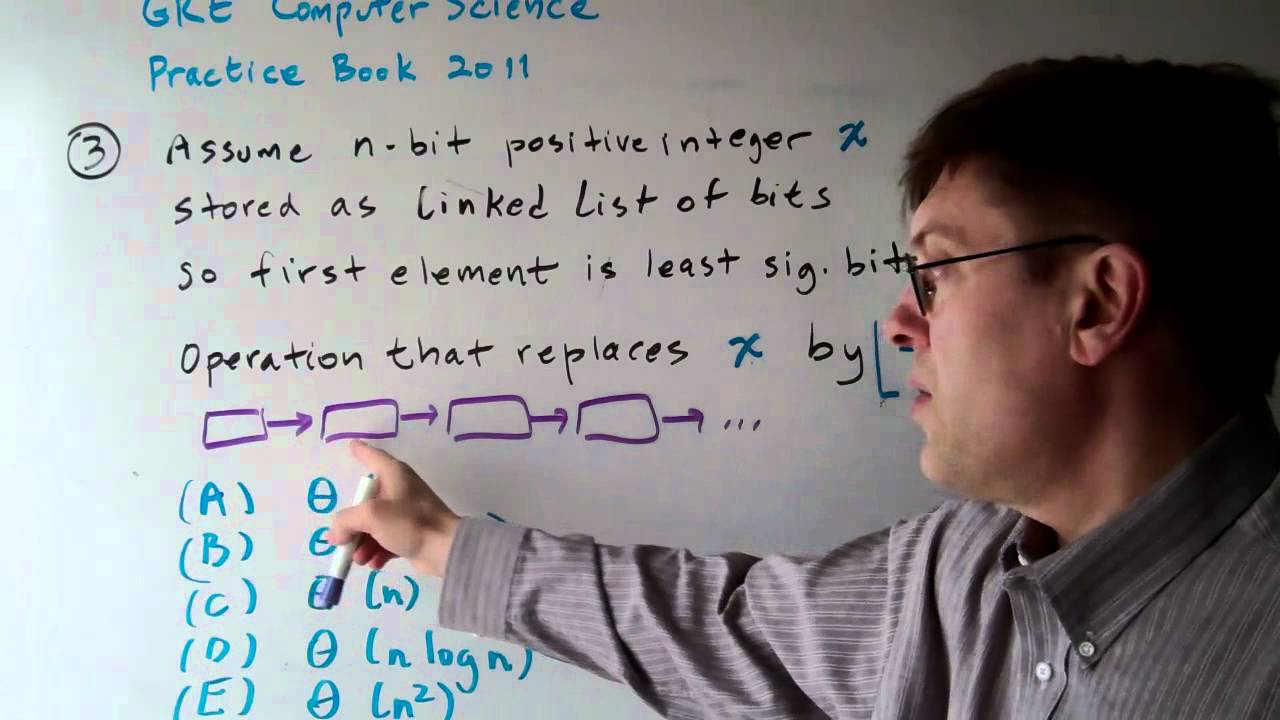 GRE Computer Science
Practice Book 2011
③ Assume n-bit positive integer x
stored as linked list of bits
so first element is least sig. bit
Operation that replaces x by ⌊
...
(A) θ
(B) θ
(C) θ (n)
(D) θ (n log n)
(E) θ (n²)